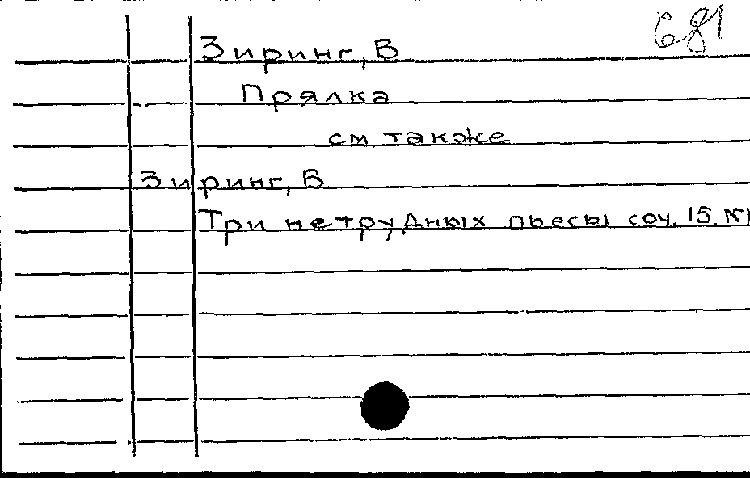 681
Зиринг, В
Прялка
см также
Зиринг, В
Три нетрудных пьесы соч. 15. №1